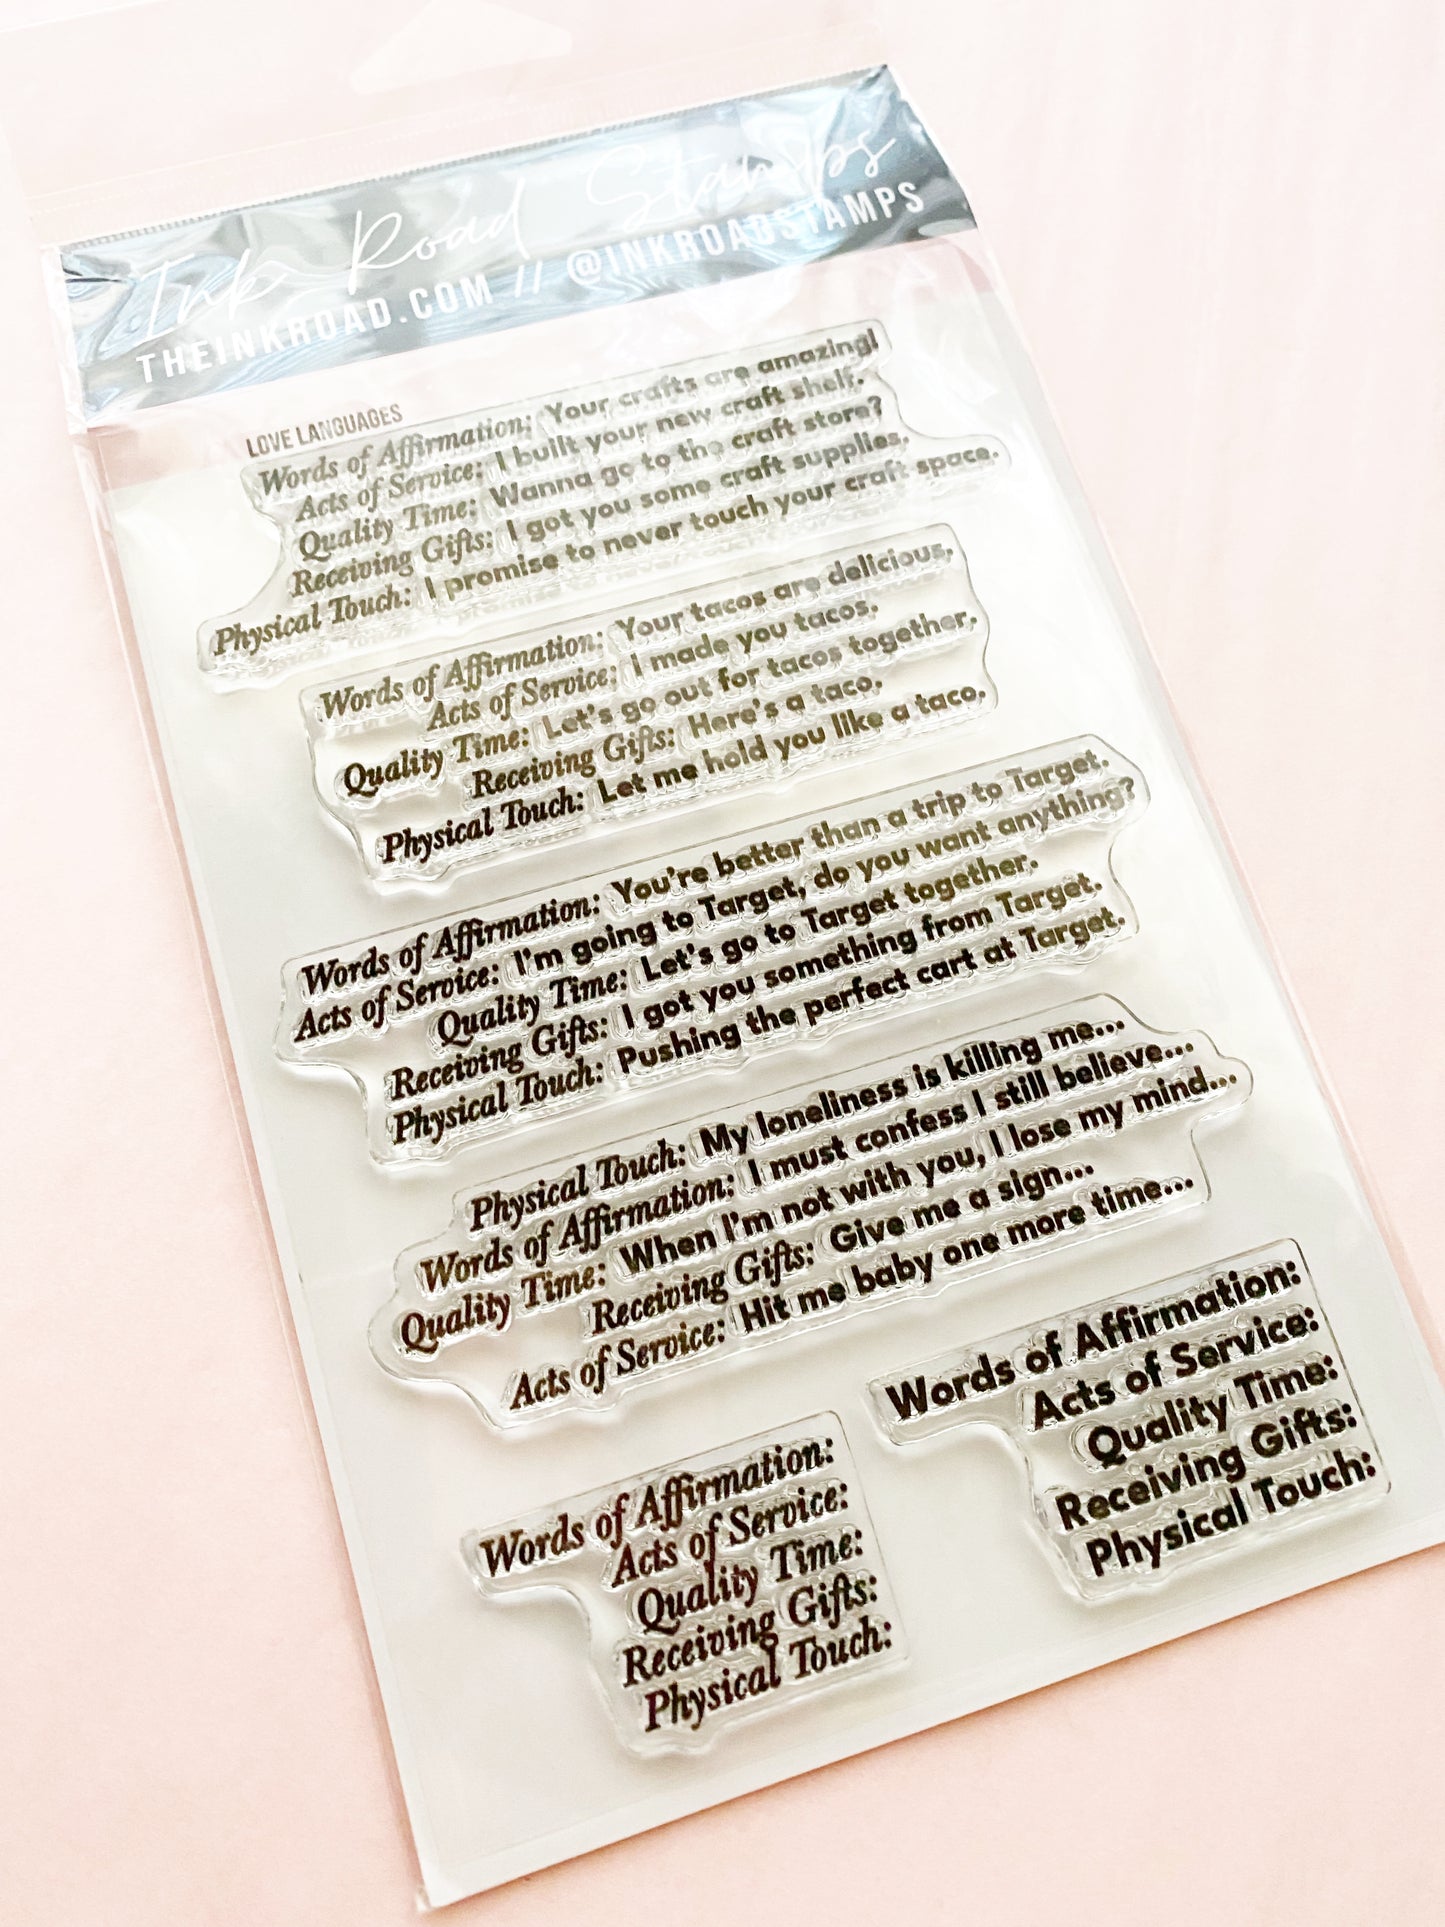 Ink Road Stamps
THEINKROAD.COM // @INKROADSTAMPS
LOVE LANGUAGES
Words of Affirmation: Your crafts are amazing!
Acts of Service: I built your new craft shelf.
Quality Time: Wanna go to the craft store?
Receiving Gifts: I got you some craft supplies.
Physical Touch: I promise to never touch your craft space.
Words of Affirmation: Your tacos are delicious.
Acts of Service: I made you tacos.
Quality Time: Let's go out for tacos together.
Receiving Gifts: Here's a taco.
Physical Touch: Let me hold you like a taco.
Words of Affirmation: You're better than a trip to Target.
Acts of Service: I'm going to Target, do you want anything?
Quality Time: Let's go to Target together.
Receiving Gifts: I got you something from Target.
Physical Touch: Pushing the perfect cart at Target.
Physical Touch: My loneliness is killing me...
Words of Affirmation: I must confess I still believe...
Quality Time: When I'm not with you, I lose my mind...
Receiving Gifts: Give me a sign...
Acts of Service: Hit me baby one more time...
Words of Affirmation:
Acts of Service:
Quality Time:
Receiving Gifts:
Physical Touch:
Words of Affirmation:
Acts of Service:
Quality Time:
Receiving Gifts:
Physical Touch: